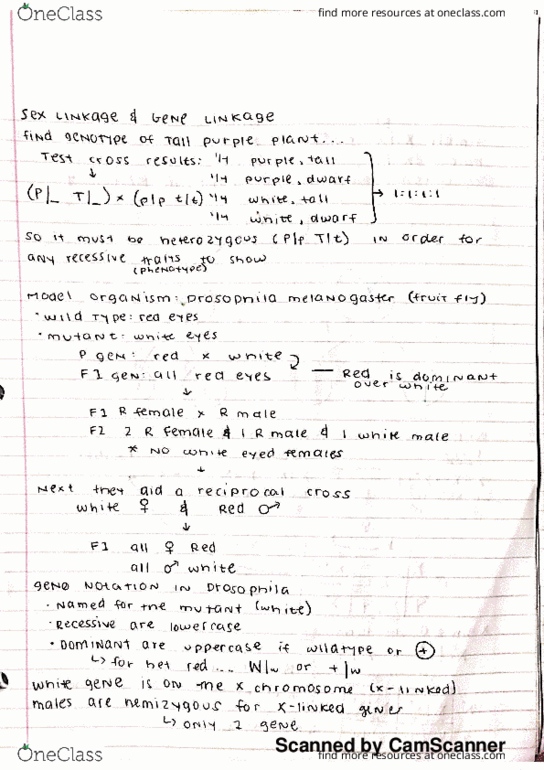 OneClass
find more resources at oneclass.com
Sex Linkage & Gene Linkage
find genotype of Tall purple plant...
Test cross results: 1/4 purple, tall
↓ 1/4 purple, dwarf
(P|_ T|_) × (p|p t|t) 1/4 white, tall → 1:1:1:1
1/4 white, dwarf
So it must be heterozygous (P|p T|t) in order for
any recessive traits to show
(phenotype)
Model organism: Drosophila melanogaster (fruit fly)
• wild type: red eyes
• mutant: white eyes
P gen: red × white
F1 gen: all red eyes — Red is dominant
over white
↓
F1 R female × R male
F2 2 R female & 1 R male & 1 white male
* No white eyed females
↓
Next they did a reciprocal cross
white ♀ & Red ♂
↓
F1 all ♀ Red
all ♂ white
gene notation in Drosophila
• Named for the mutant (white)
• Recessive are lowercase
• Dominant are uppercase if wildtype or (+)
↳ for het red... W|w or +|w
white gene is on the x chromosome (x-linked)
males are hemizygous for x-linked genes
↳ only 1 gene
Scanned by CamScanner
OneClass
find more resources at oneclass.com